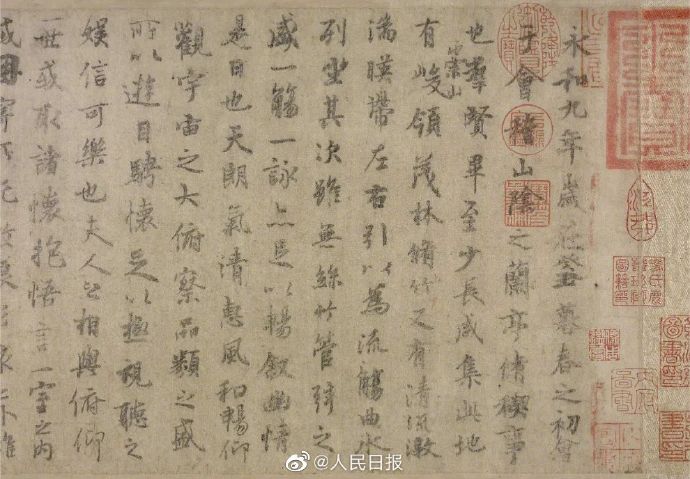 永和九年歲在癸丑暮春之初會
于會稽山陰之蘭亭脩禊事
也羣賢畢至少長咸集此地
崇山
有峻領茂林脩竹又有清流激
湍暎帶左右引以為流觴曲水
列坐其次雖無絲竹管弦之
盛一觴一詠亦足以暢敘幽情
是日也天朗氣清惠風和暢仰
觀宇宙之大俯察品類之盛
所以遊目騁懷足以極視聽之
娛信可樂也夫人之相與俯仰
一世或取諸懷抱悟言一室之內
@人民日报